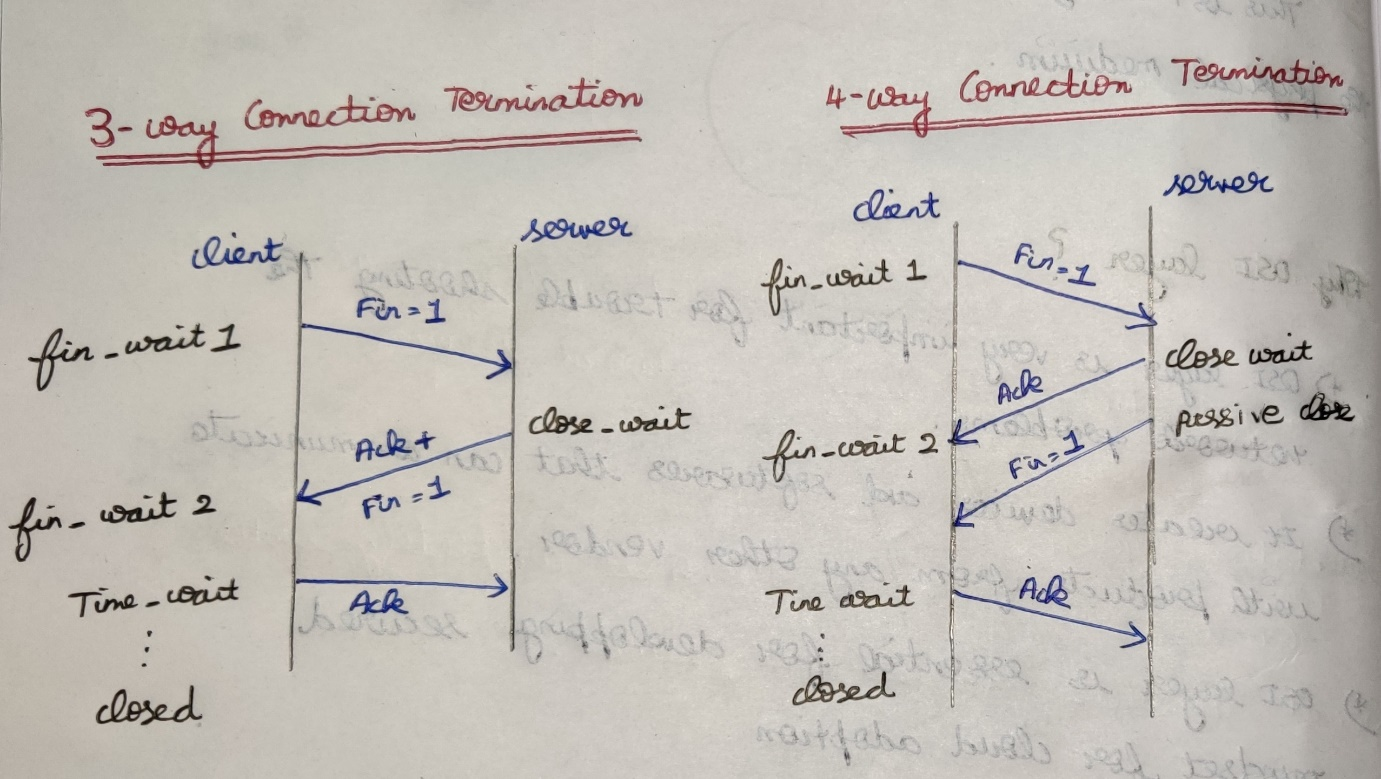 3-way Connection Termination
client
server
fin_wait 1
Fin=1
close_wait
Ack+
Fin=1
fin_wait 2
Time_wait
Ack
closed
4-way Connection Termination
client
server
fin_wait 1
Fin=1
close wait
Ack
passive close
fin_wait 2
Fin=1
Time wait
Ack
closed